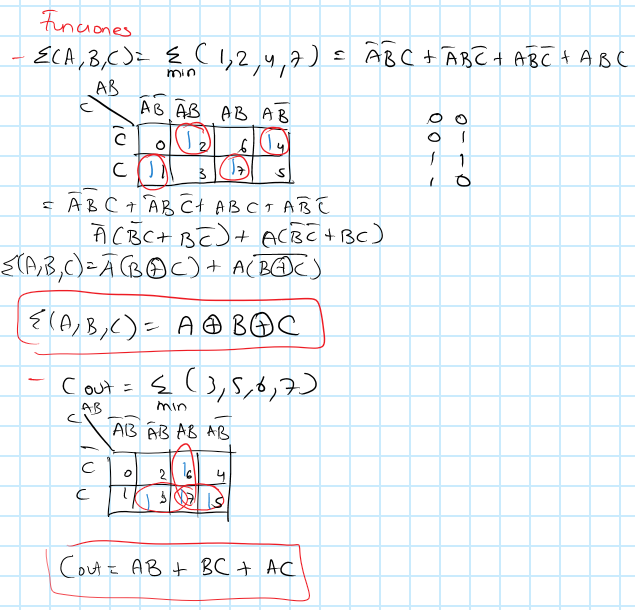 Funciones
- Σ(A,B,C) = Σ min (1,2,4,7) = A̅B̅C + A̅BC̅ + AB̅C̅ + ABC
AB
C
A̅B̅ A̅B AB AB̅
C̅ 0 1 2 6 1 4
C 1 1 3 1 7 5
0 0
0 1
1 1
1 0
= A̅B̅C + A̅BC̅ + ABC + AB̅C̅
A̅(B̅C + BC̅) + A(B̅C̅ + BC)
Σ(A,B,C) = A̅(B⊕C) + A(B̅⊕̅C̅)
Σ(A,B,C) = A⊕B⊕C
- Cout = Σ min (3,5,6,7)
AB
C
A̅B̅ A̅B AB AB̅
C̅ 0 2 1 6 4
C 1 1 3 1 7 1 5
Cout = AB + BC + AC